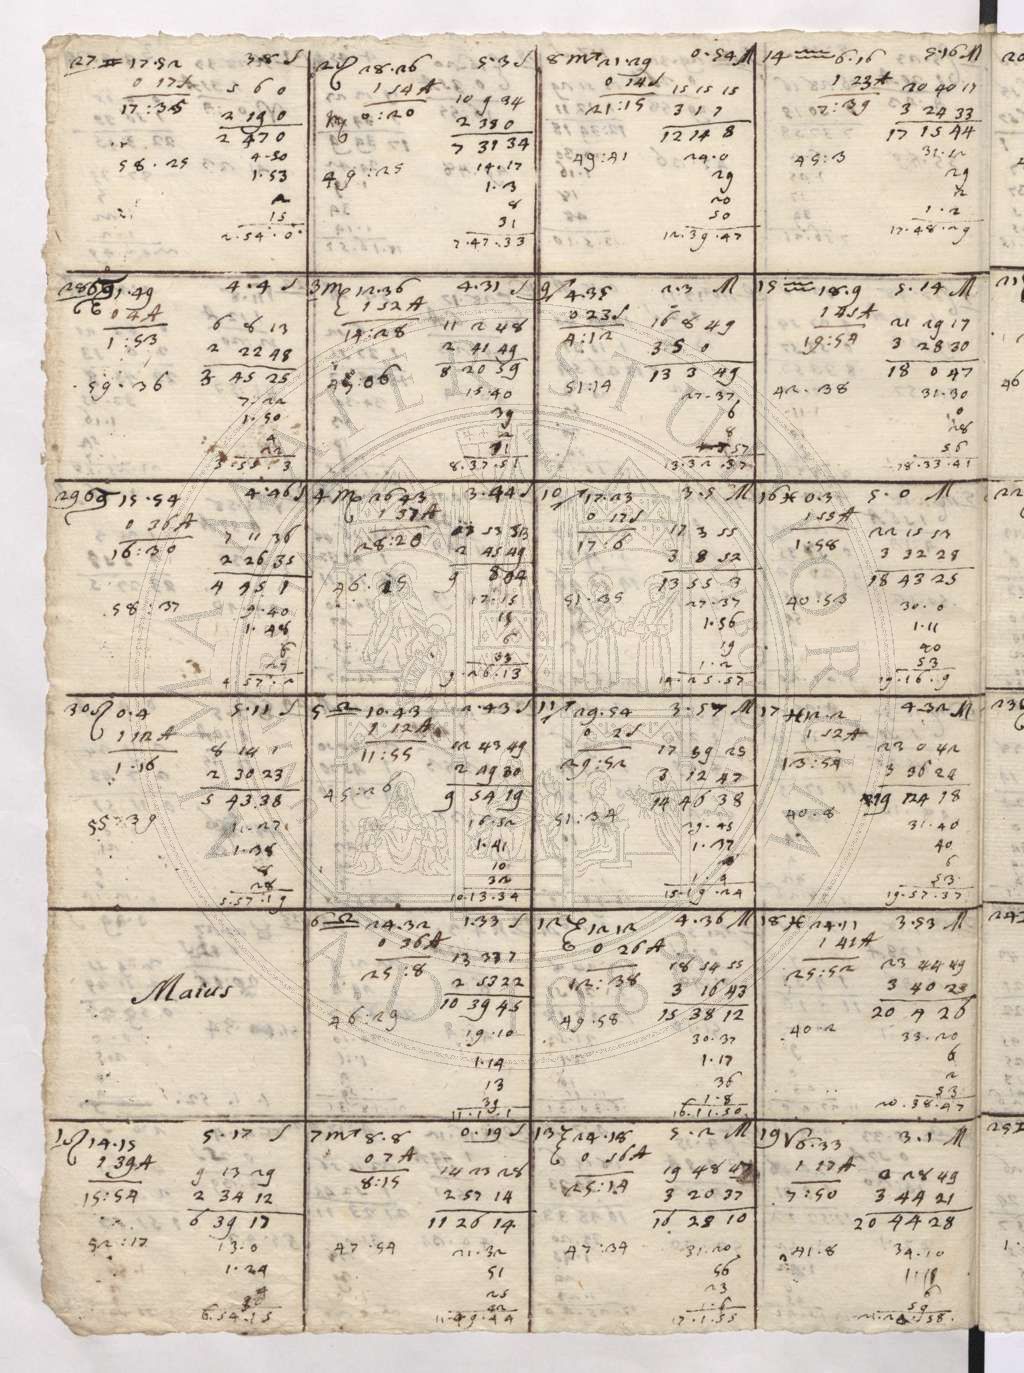 27 ♊ 17.52 3.8 S
0 17 S
17:35
5 6 0
2 19 0
2 47 0
58.25
4.50
1.53
2
15
2.54.0
2 ♌ 28.26 5.3 S
1 54 A
♍ 0:20
10 9 34
2 38 0
7 31 34
49:25
14.17
1.3
8
31
7.47.33
8 ♏ 21.29 0.54 M
0 14 S
21:15
15 15 15
3 1 7
12 14 8
49:41
24.0
29
20
50
12.39.47
14 ♒ 6.16 5.16 M
1 23 A
7:39
20 40 11
3 24 33
17 15 44
45:3
31.12
29
2
1.2
17.48.29
28 ♋ 1.49 4.4 S
0 4 A
1:53
6 8 13
2 22 48
3 45 25
59.36
7.22
1.50
4
22
3.55.3
3 ♍ 12.36 4.31 S
1 52 A
14:28
11 2 48
2 41 49
8 20 59
45:06
15.40
39
2
31
8.37.51
9 ♐ 4.35 2.3 M
0 23 S
4:12
16 8 49
3 5 0
13 3 49
51:14
27.37
6
8
57
13.32.37
15 ♒ 18.9 5.14 M
1 45 A
19:54
21 29 17
3 28 30
18 0 47
42.38
31.30
0
28
56
18.33.41
29 ♋ 15.54 4.46 S
0 36 A
16:30
7 11 36
2 26 35
4 45 1
58:37
9.40
1.48
6
27
4.57.2
4 ♍ 26 43 3.44 S
1 37 A
28:20
2 45 49
9 8 04
46.25
17.15
15
6
33
9.26.13
10 ♐ 17.23 3.5 M
0 17 S
17:6
17 3 55
3 8 52
13 55 3
51.35
27.37
1.56
19
1.2
14.25.57
16 ♓ 0.3 5.0 M
1 55 A
1:58
22 15 53
3 32 28
18 43 25
40.53
30.0
1.11
20
53
19.16.9
30 ♌ 0.4 5.11 S
1 12 A
1.16
8 14 1
2 30 23
5 43.38
55:39
11.27
1.38
8
28
5.57.19
5 ♎ 10.43 2.43 S
1 12 A
11:55
12 43 49
2 49 30
9 54 19
45:26
16.52
1.41
10
32
10.13.34
11 ♐ 29.54 3.57 M
0 2 S
29:52
17 59 25
3 12 47
14 46 38
51:34
29.45
1.37
1.4
15.19.24
17 ♓ 12.2 4.32 M
1 52 A
13:54
23 0 42
3 36 24
19 24 18
40.8
31.40
40
6
53
19.57.37
Maius
6 ♎ 24.32 1.33 S
0 36 A
25:8
13 33 7
2 53 22
10 39 45
46:29
19.10
1.14
13
39
11.1.1
12 ♑ 12 12 4.36 M
0 26 A
12:38
18 54 55
3 16 43
15 38 12
49.58
30.37
1.17
36
1.8
16.11.50
18 ♓ 24.11 3.53 M
1 41 A
25:52
23 44 49
3 40 23
20 4 26
40.2
33.20
6
2
53
20.38.47
1 ♌ 14.15 5.17 S
1 39 A
15:54
9 13 29
2 34 12
6 39 17
52:17
13.0
1.24
6.54.15
7 ♏ 8.8 0.19 S
0 7 A
8:15
14 23 28
2 57 14
11 26 14
47:54
21.32
51
25
42
11.49.44
13 ♑ 24.18 5.2 M
0 56 A
25:14
19 48 47
3 20 37
16 28 10
47:34
31.20
56
23
1.6
17.1.55
19 ♈ 6.33 3.1 M
1 17 A
7:50
0 28 49
3 44 21
20 44 28
41.8
34.10
1.18
6
59